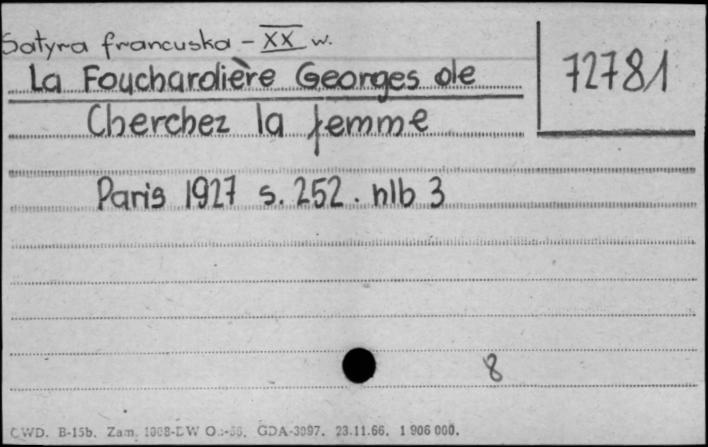 Satyra francuska - XX w.
La Fouchardière Georges de
72781
Cherchez la femme
Paris 1927 s. 252. nlb 3
8
CWD. B-15b. Zam. GDA-3097. 23.11.66. 1 906 000.